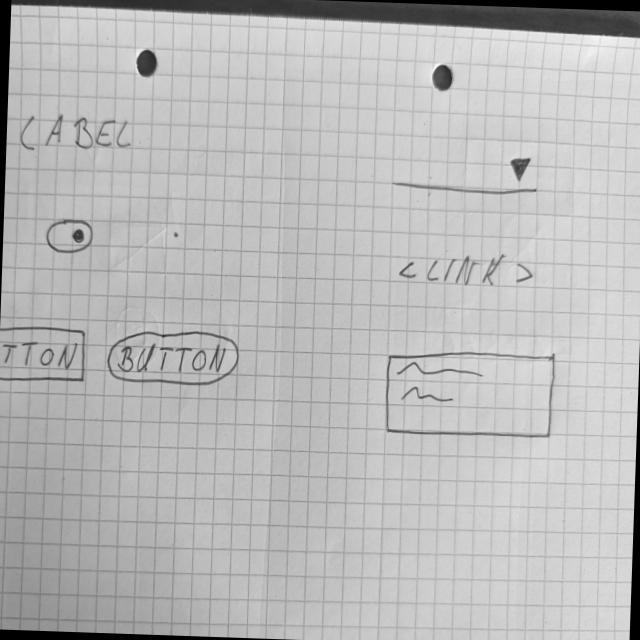 LABEL
<LINK>
TTON BUTTON